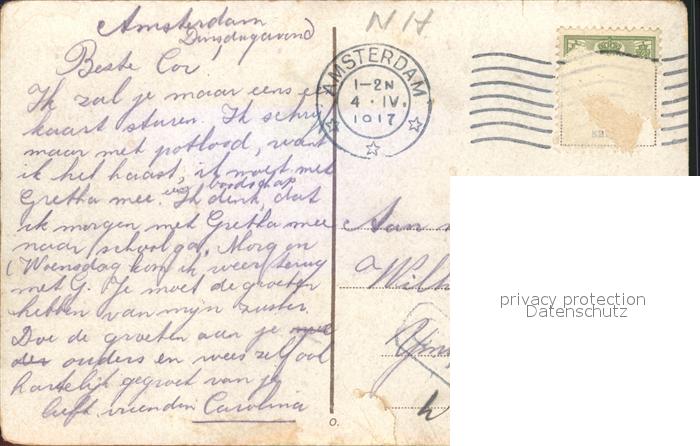 Amsterdam
Dinsdagavond
N H
Beste Cor!
Ik zal je maar eens e
kaart sturen. Ik schrij
maar met potlood, want
ik heb haast, ik moest met
Gretha mee een boodschap. Ik denk, dat
ik morgen met Gretha mee
naar school ga, Morgen
(Woensdag kom ik weer terug
met G. Je moet de groeten
hebben van mijn zuster.
Doe de groeten aan je
ouders en wees zelf ook
hartelijk gegroet van je
liefh vriendin Carolina
AMSTERDAM
1-2N
4 · IV.
1917
Aan
Wilh
privacy protection
Datenschutz